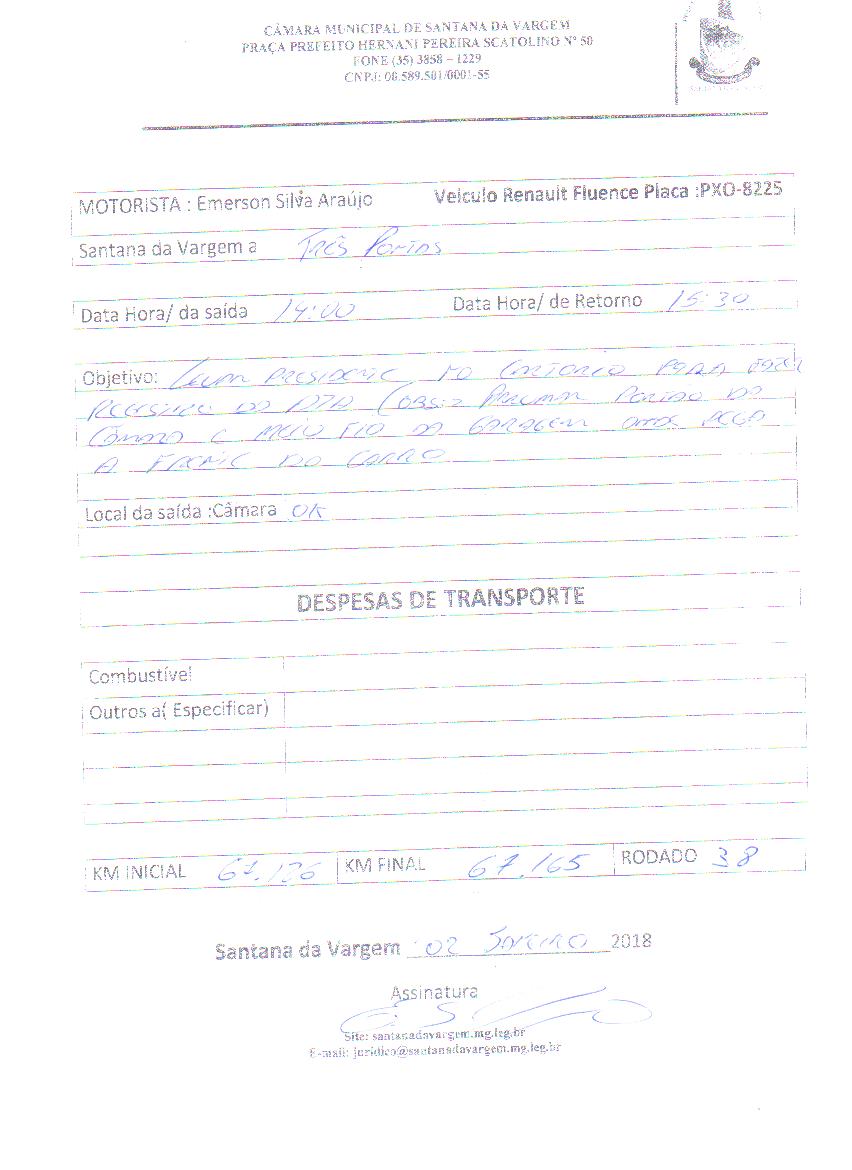 CÂMARA MUNICIPAL DE SANTANA DA VARGEM
PRAÇA PREFEITO HERNANI PEREIRA SCATOLINO Nº 50
FONE (35) 3858 – 1229
CNPJ: 06.589.501/0001-55
MOTORISTA : Emerson Silva Araújo Veiculo Renault Fluence Placa :PXO-8225
Santana da Vargem a Três Pontas
Data Hora/ da saída 14:00 Data Hora/ de Retorno 15:30
Objetivo: Levar presidente no cartorio para fazer
registro da ATA (OBS:
Câmara e meio fio da garagem
a frente do carro
Local da saída :Câmara OK
DESPESAS DE TRANSPORTE
Combustível
Outros a( Especificar)
KM INICIAL 67.126 KM FINAL 67.165 RODADO 38
Santana da Vargem 02 Janeiro 2018
Assinatura
Site: santanadavargem.mg.leg.br
E-mail: juridico@santanadavargem.mg.leg.br